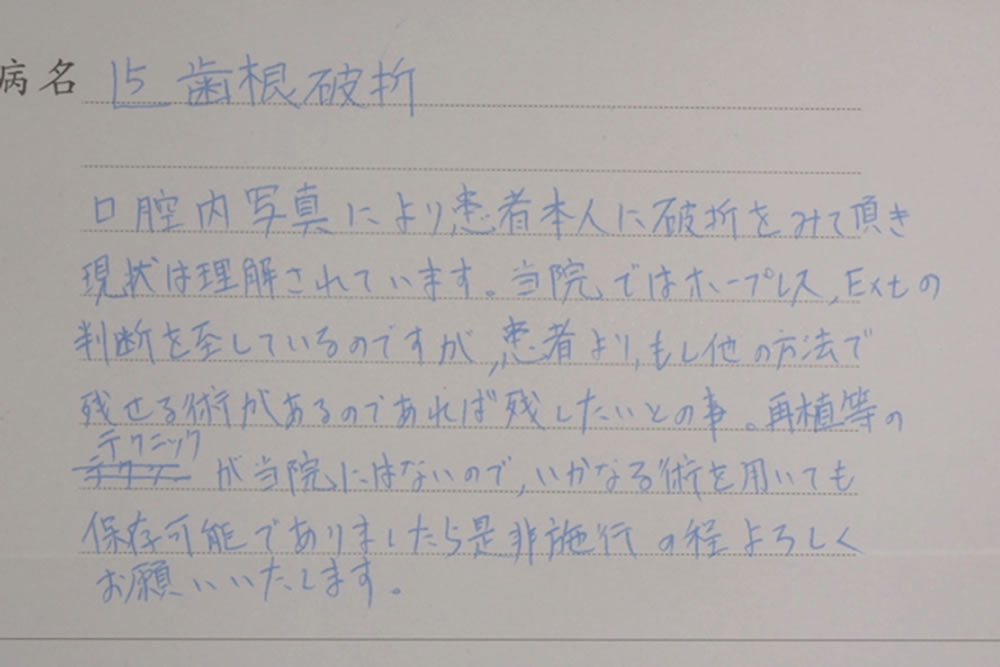 病名 ⌊5 歯根破折
口腔内写真により患者本人に破折をみて頂き
現状は理解されています。当院ではホープレス、Extの
判断を至しているのですが、患者より、もし他の方法で
残せる術があるのであれば残したいとの事。再植等の
テクニック
が当院にはないので、いかなる術を用いても
保存可能でありましたら是非施行の程よろしく
お願いいたします。